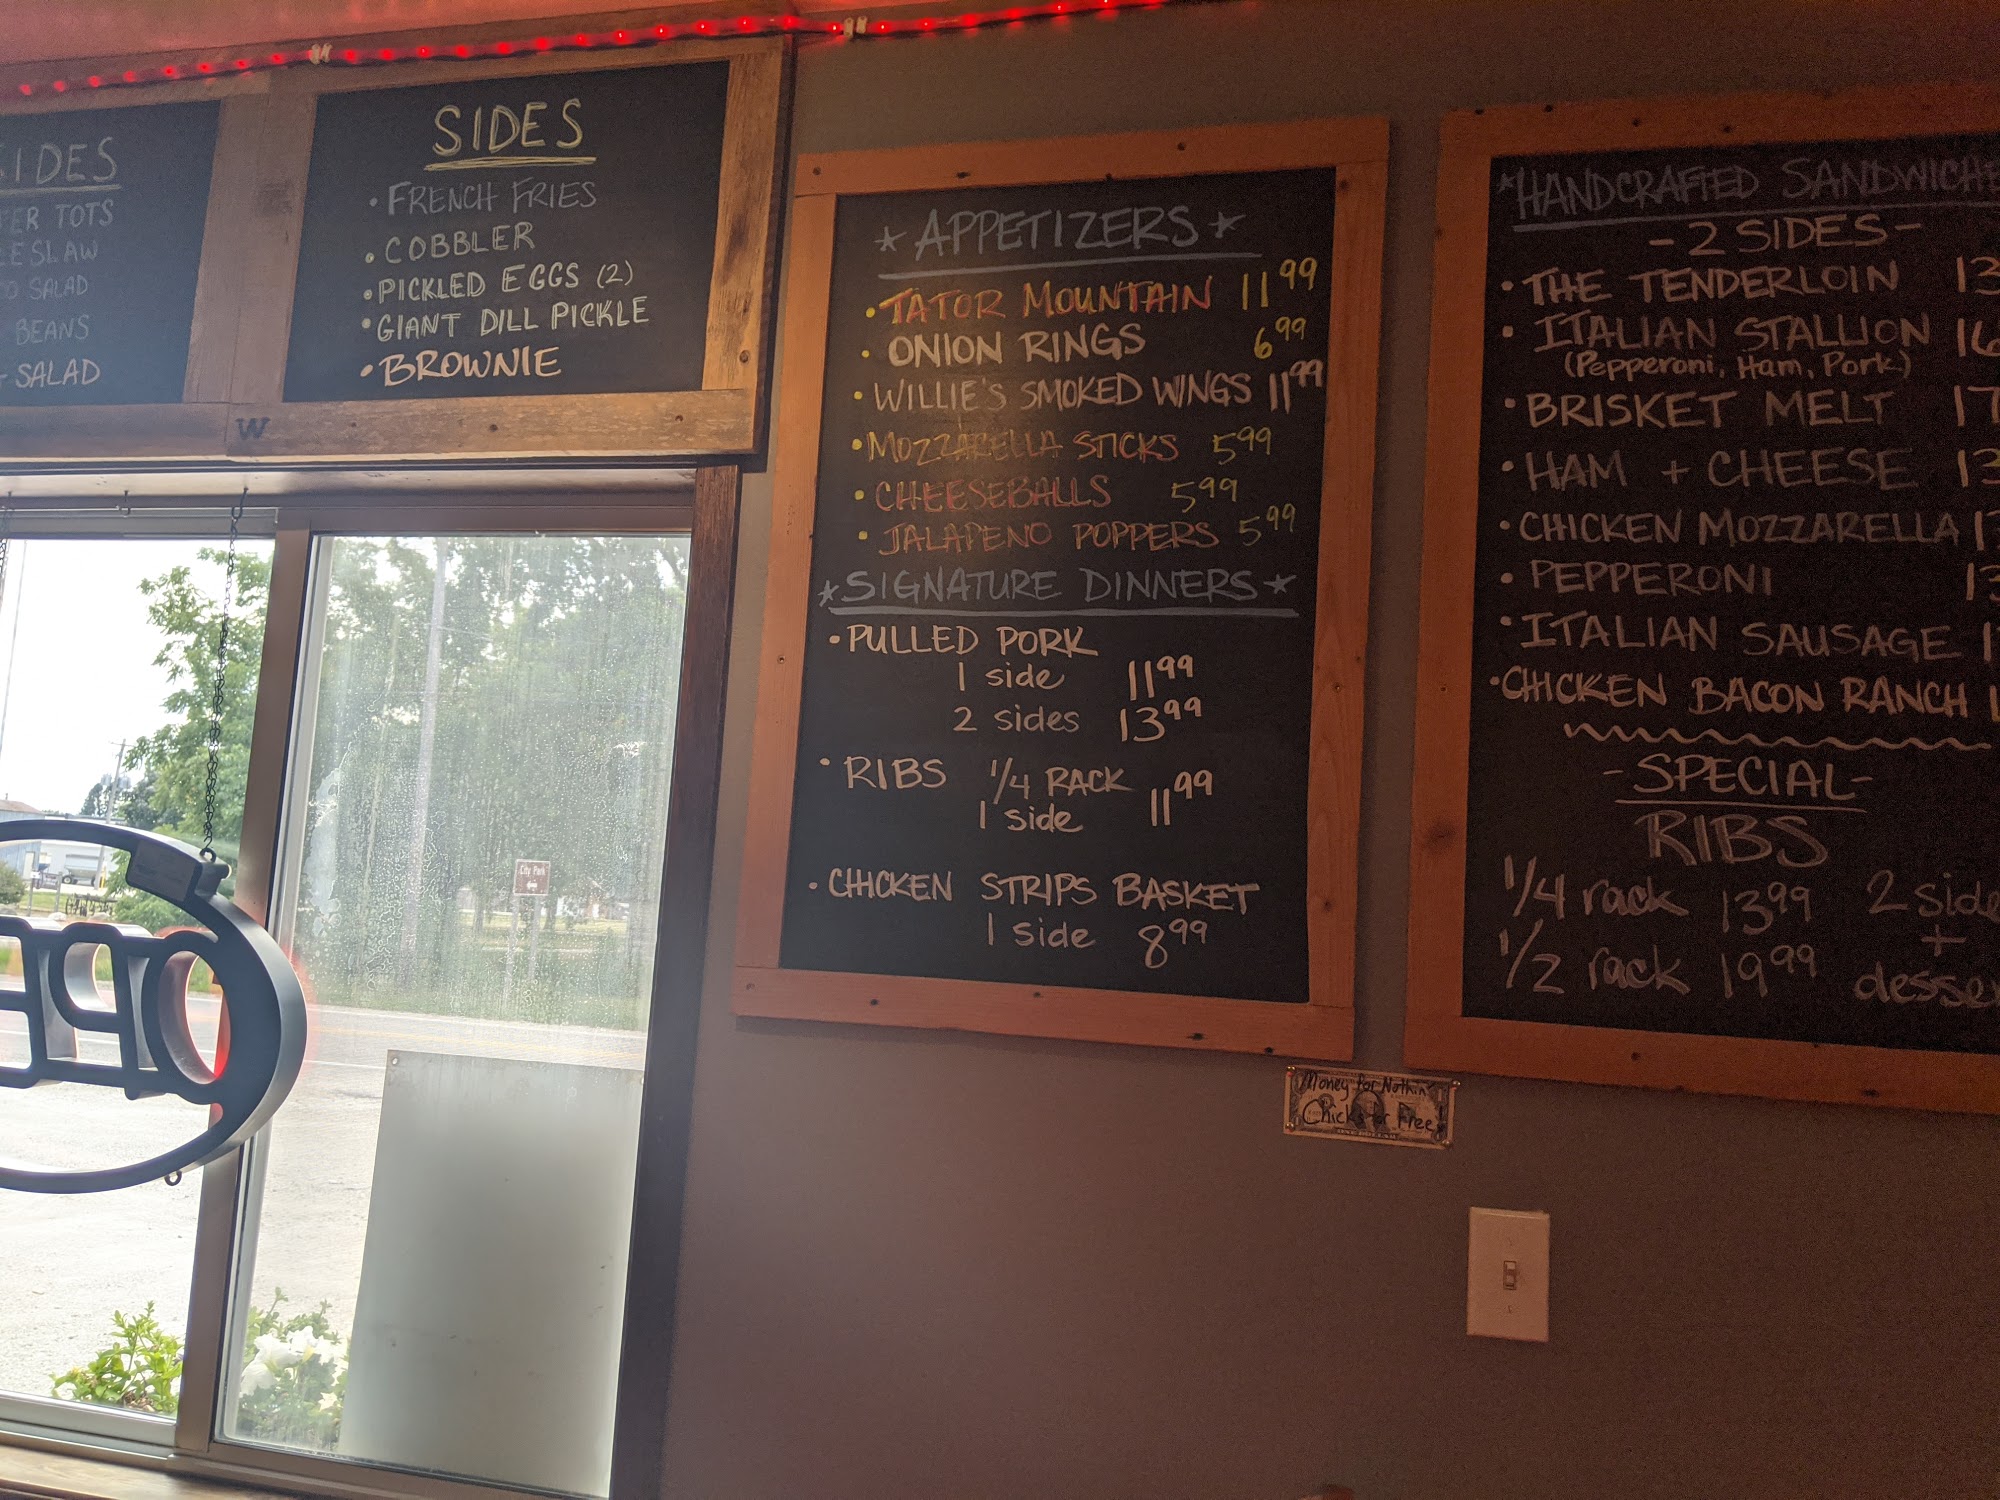 SIDES
TOTS
SALAD
BEANS
SALAD
SIDES
• FRENCH FRIES
• COBBLER
• PICKLED EGGS (2)
• GIANT DILL PICKLE
• BROWNIE
W
* APPETIZERS *
• TATOR MOUNTAIN 11.99
• ONION RINGS 6.99
• WILLIE'S SMOKED WINGS 11.99
• MOZZARELLA STICKS 5.99
• CHEESEBALLS 5.99
• JALAPENO POPPERS 5.99
* SIGNATURE DINNERS *
• PULLED PORK
1 side 11.99
2 sides 13.99
• RIBS 1/4 RACK
1 side 11.99
• CHICKEN STRIPS BASKET
1 side 8.99
* HANDCRAFTED
- 2 SIDES -
• THE TENDERLOIN 13
• ITALIAN STALLION 16
(Pepperoni, Ham, Pork)
• BRISKET MELT 17
• HAM + CHEESE 13
• CHICKEN MOZZARELLA
• PEPPERONI 13
• ITALIAN SAUSAGE
• CHICKEN BACON RANCH
- SPECIAL -
RIBS
1/4 rack 13.99 2
+
1/2 rack 19.99
City Park
OPEN
Money for Nothin'
Chicks for Free